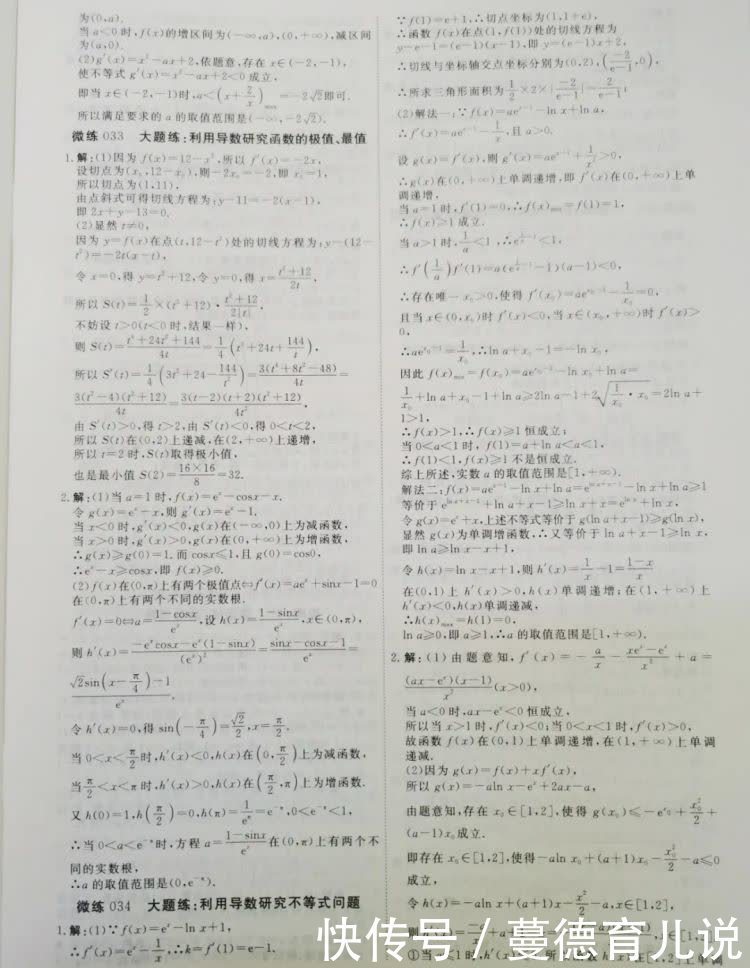 为(0,a).
当a<0时,f(x)的增区间为(-∞,a),(0,+∞),减区间
为(a,0).
(2)g′(x)=x²-ax+2,依题意,存在x∈(-2,-1),
使不等式g′(x)=x²-ax+2<0成立,
即当x∈(-2,-1)时,a<(x+2/x)max=-2√2即可.
所以满足要求的a的取值范围是(-∞,-2√2).
微练033 大题练:利用导数研究函数的极值、最值
1.解:(1)因为f(x)=12-x²,所以f′(x)=-2x,
设切点为(x₀,12-x₀²),则-2x₀=-2,即x₀=1,
所以切点为(1,11),
由点斜式可得切线方程为:y-11=-2(x-1),
即2x+y-13=0.
(2)显然t≠0,
因为y=f(x)在点(t,12-t²)处的切线方程为:y-(12-
t²)=-2t(x-t),
令x=0,得y=t²+12,令y=0,得x=(t²+12)/2t,
所以S(t)=1/2×(t²+12)·(t²+12)/2|t|.
不妨设t>0(t<0时,结果一样),
则S(t)=(t⁴+24t²+144)/4t=1/4(t³+24t+144/t),
所以S′(t)=1/4(3t²+24-144/t²)=3(t⁴+8t²-48)/4t²=
3(t²-4)(t²+12)/4t²=3(t-2)(t+2)(t²+12)/4t²,
由S′(t)>0,得t>2,由S′(t)<0,得0<t<2,
所以S(t)在(0,2)上递减,在(2,+∞)上递增,
所以t=2时,S(t)取得极小值,
也是最小值S(2)=16×16/8=32.
2.解:(1)当a=1时,f(x)=eˣ-cosx-x,
令g(x)=eˣ-x,则g′(x)=eˣ-1,
当x<0时,g′(x)<0,g(x)在(-∞,0)上为减函数,
当x>0时,g′(x)>0,g(x)在(0,+∞)上为增函数,
∴g(x)≥g(0)=1,而cosx≤1,且g(0)=cos0,
∴eˣ-x≥cosx,即f(x)≥0.
(2)f(x)在(0,π)上有两个极值点⇔f′(x)=aeˣ+sinx-1=0
在(0,π)上有两个不同的实数根.
f′(x)=0⇔a=(1-cosx)/eˣ,设h(x)=(1-sinx)/eˣ,x∈(0,π),
则h′(x)=(-eˣcosx-eˣ(1-sinx))/(eˣ)²=(sinx-cosx-1)/eˣ=
(√2sin(x-π/4)-1)/eˣ.
令h′(x)=0,得sin(-π/4)=√2/2,x=π/2.
当0<x<π/2时,h′(x)<0,h(x)在(0,π/2)上为减函数,
当π/2<x<π时,h′(x)>0,h(x)在(π/2,π)上为增函数.
又h(0)=1,h(π/2)=0,h(π)=1/e^π=e^-π,0<e^-π<1,
∴当0<a<e^-π时,方程a=(1-sinx)/eˣ在(0,π)上有两个不
同的实数根,
∴a的取值范围是(0,e^-π).
微练034 大题练:利用导数研究不等式问题
1.解:(1)∵f(x)=eˣ-ln x+1,
∴f′(x)=eˣ-1/x,∴k=f′(1)=e-1.
∵f(1)=e+1,∴切点坐标为(1,1+e),
∴函数f(x)在点(1,f(1))处的切线方程为
y-e-1=(e-1)(x-1),即y=(e-1)x+2,
∴切线与坐标轴交点坐标分别为(0,2),(-2/(e-1),0),
∴所求三角形面积为1/2×2×|-2/(e-1)|=2/(e-1);
(2)解法一:∵f(x)=aeˣ⁻¹-ln x+ln a,
∴f′(x)=aeˣ⁻¹-1/x,且a>0.
设g(x)=f′(x),则g′(x)=aeˣ⁻¹+1/x²>0,
∴g(x)在(0,+∞)上单调递增,即f′(x)在(0,+∞)上单
调递增,
当a=1时,f′(1)=0,∴f(x)min=f(1)=1,
∴f(x)≥1成立.
当a>1时,1/a<1,∴e^(1/a-1)<1,
∴f′(1/a)f′(1)=a(e^(1/a-1)-1)(a-1)<0,
∴存在唯一x₀>0,使得f′(x₀)=ae^(x₀-1)-1/x₀=0,
且当x∈(0,x₀)时f′(x)<0,当x∈(x₀,+∞)时f′(x)>
0,
∴ae^(x₀-1)=1/x₀,∴ln a+x₀-1=-ln x₀,
因此f(x)min=f(x₀)=ae^(x₀-1)-ln x₀+ln a=
1/x₀+ln a+x₀-1+ln a≥2ln a-1+2√(1/x₀·x₀)=2ln a+
1>1,
∴f(x)>1,∴f(x)≥1恒成立;
当0<a<1时,f(1)=a+ln a<a<1,
∴f(1)<1,f(x)≥1不是恒成立.
综上所述,实数a的取值范围是[1,+∞).
解法二:f(x)=aeˣ⁻¹-ln x+ln a=e^(ln a+x-1)-ln x+ln a≥1
等价于e^(ln a+x-1)+ln a+x-1≥ln x+x=e^(ln x)+ln x,
令g(x)=eˣ+x,上述不等式等价于g(ln a+x-1)≥g(ln x),
显然g(x)为单调增函数,∴又等价于ln a+x-1≥ln x,
即ln a≥ln x-x+1,
令h(x)=ln x-x+1,则h′(x)=1/x-1=(1-x)/x
在(0,1)上h′(x)>0,h(x)单调递增;在(1,+∞)上
h′(x)<0,h(x)单调递减,
∴h(x)max=h(1)=0,
ln a≥0,即a≥1,∴a的取值范围是[1,+∞).
2.解:(1)由题意知,f′(x)=-a/x-(xeˣ-eˣ)/x²+a=
(ax-eˣ)(x-1)/x²(x>0),
当a<0时,ax-eˣ<0恒成立,
所以当x>1时,f′(x)<0;当0<x<1时,f′(x)>0,
故函数f(x)在(0,1)上单调递增,在(1,+∞)上单调
递减.
(2)因为g(x)=f(x)+xf′(x),
所以g(x)=-aln x-eˣ+2ax-a,
由题意知,存在x₀∈[1,2],使得g(x₀)≤-e^x₀+x₀²/2+
(a-1)x₀成立.
即存在x₀∈[1,2],使得-aln x₀+(a+1)x₀-x₀²/2-a≤0
成立,
令h(x)=-aln x+(a+1)x-x²/2-a,x∈[1,2],
快传号 / 蔓德育儿说